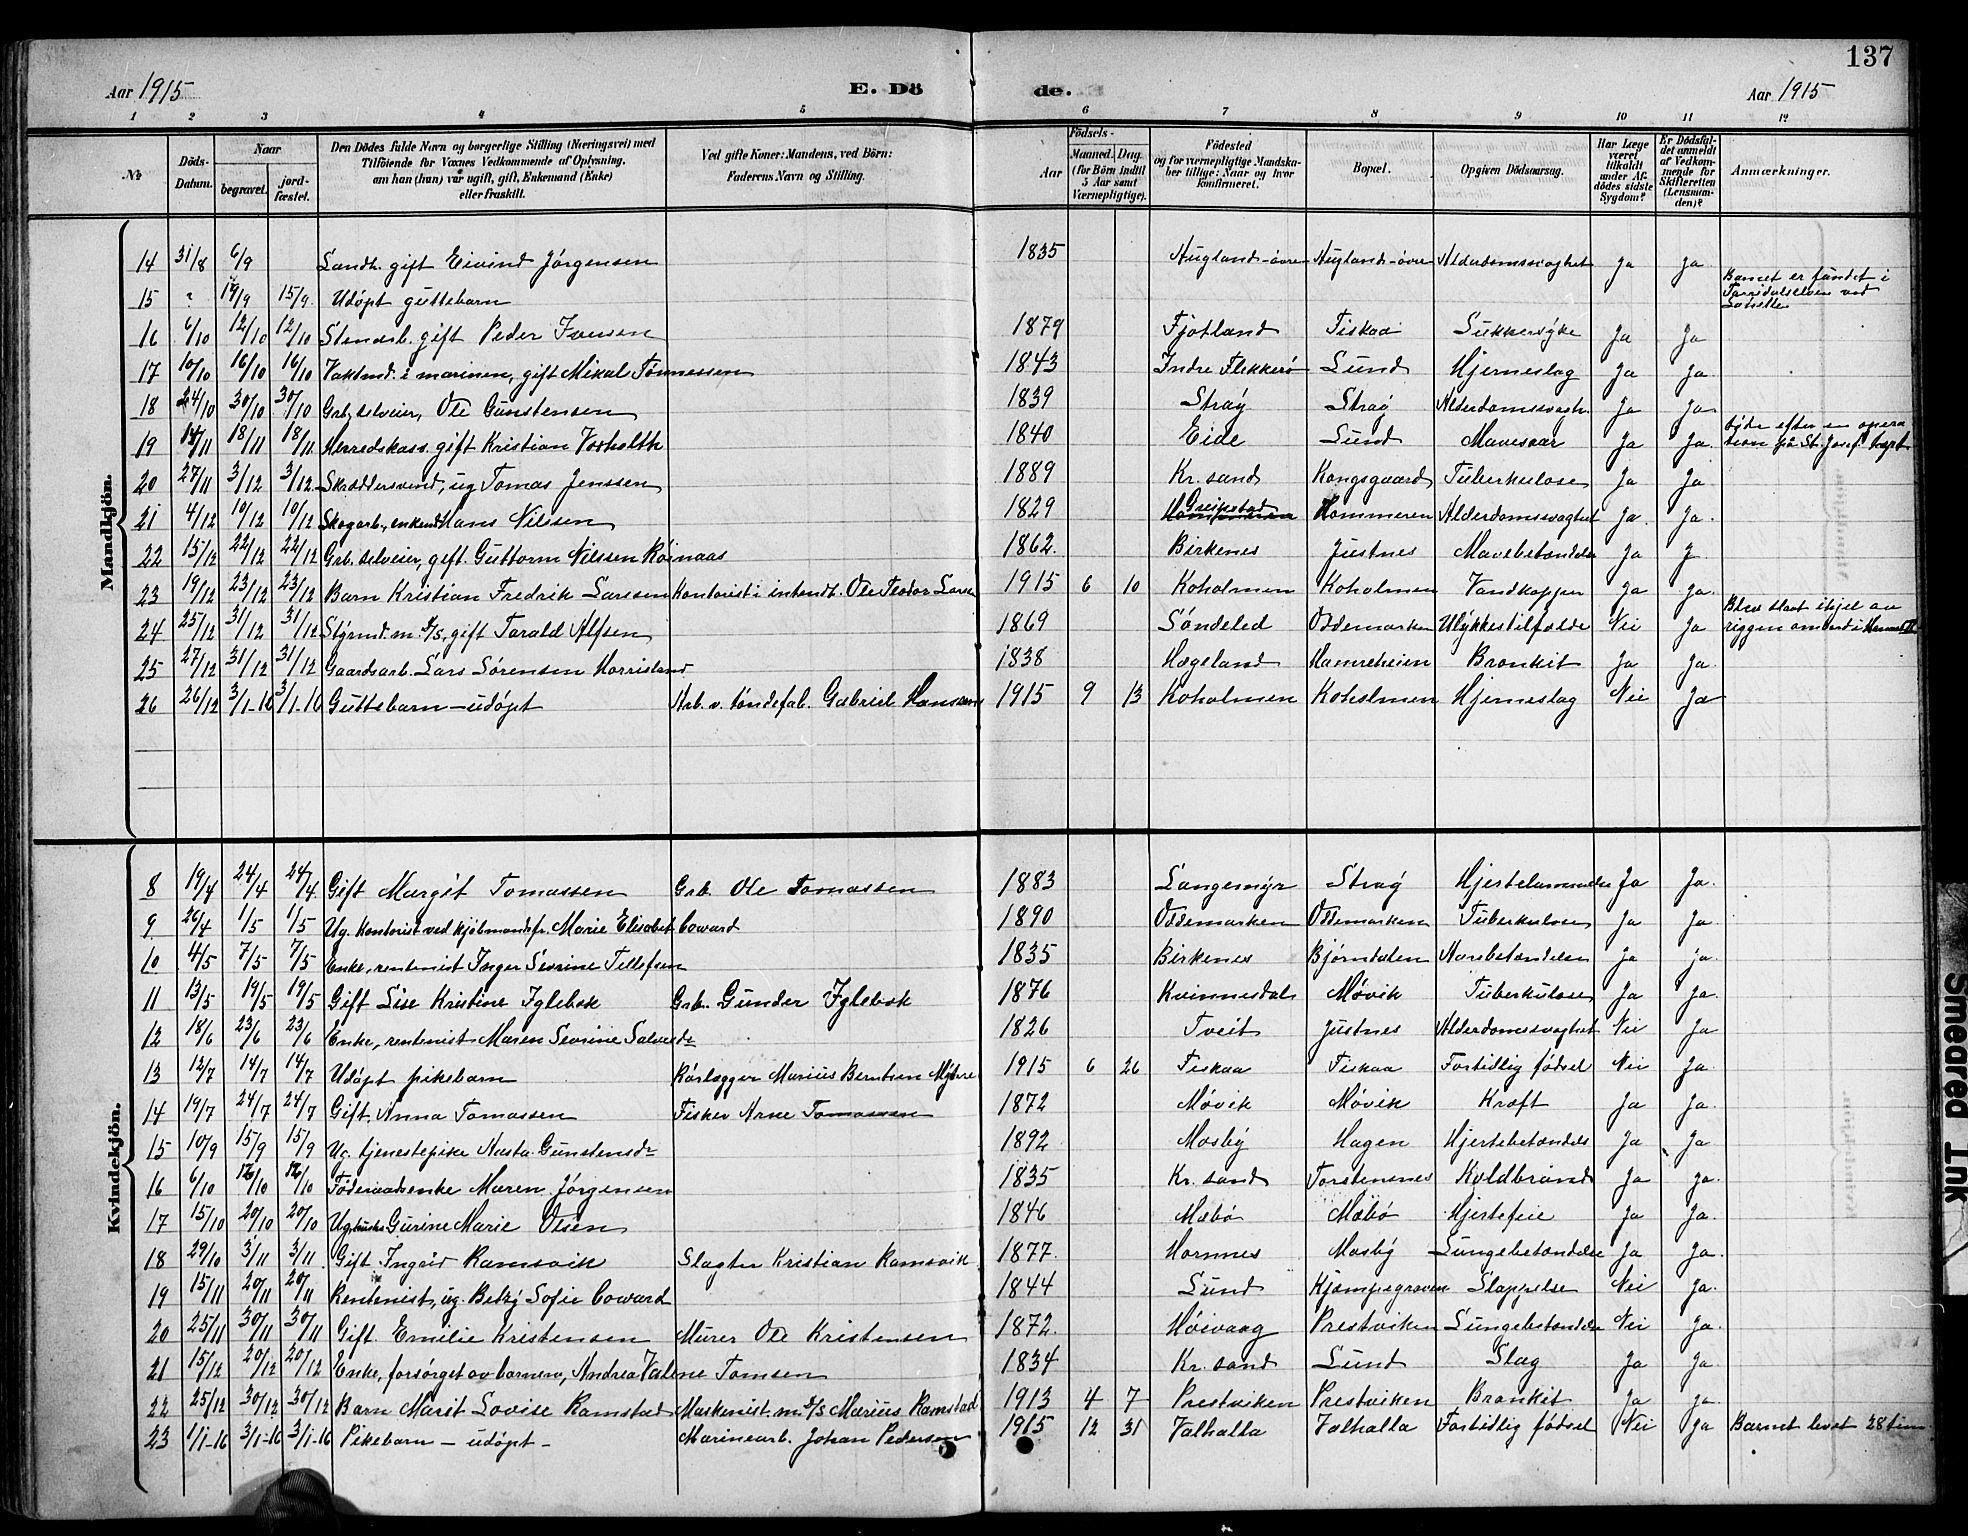 137
Aar 1915 E. Dö de. Aar 1915
1 2 3 4 5 6 7 8 9 10 11 12
№ Döds-Datum. Naar begravet. jord-fæstet. Den Dödes fulde Navn og borgerlige Stilling (Næringsvei) med Tilföiende for Voxnes Vedkommende af Oplysning, om han (hun) var ugift, gift, Enkemand (Enke) eller fraskilt. Ved gifte Koner: Mandens, ved Börn: Faderens Navn og Stilling. Födsels- Aar Maaned. Dag. (for Börn indtil 5 Aar samt Værnepligtige). Födested og for værnepligtige Mandskaber tillige: Naar og hvor konfirmeret. Bopæl. Opgiven Dödsaarsag. Har Læge været tilkaldt under Afdödes sidste Sygdom? Er Dödsfaldet anmeldt af Vedkommende for Skifteretten (Lensmanden)? Anmærkninger.
Mandkjön.
14 31/8 6/9 Landh. gift Eivind Jörgensen 1835 Augland-övre Augland-övre Alderdomssvaghet Ja Ja
15 ? 14/9 15/9 Udöpt guttebarn Barnet er fundet i Torridalselven ved
16 6/10 12/10 12/10 Stenarb. gift Peder Iversen 1879 Fjotland Fiskaa Sukkersyke Ja Ja
17 10/10 16/10 16/10 Vaktmd. i marinen, gift Mikal Tönnessen 1843 Indre Flekkerö Lund Hjerneslag Ja Ja
18 24/10 30/10 30/10 Grb. selveier, Ole Gunstensen 1839 Stray Stray Alderdomssvagh. Ja Ja
19 14/11 18/11 18/11 Herredskass. gift Kristian Vosholth 1840 Eide Lund Mavesaar Ja Ja döde efter en operation på St. Josef
20 27/11 3/12 3/12 Skræddersvend, ug Tomas Jenssen 1889 Kr. sand Kongsgaard Tuberkulose Ja Ja
21 4/12 10/12 10/12 Skogarb., enkemd Hans Nilssen 1829 Greipstad Kommeren Alderdomssvaghet Ja Ja
22 15/12 22/12 22/12 Grb. selveier, gift. Guttorm Nilssen Röinaas 1862. Birkenes Justnes Mavebetændelse Ja J
23 19/12 23/12 23/12 Barn Kristian Fredrik Larssen Kontorist i intendt. Ole Teodor Larsen 1915 6 10 Koholmen Koholmen Vandkopper Ja Ja
24 25/12 31/12 31/12 Styrmd. m. D/S, gift Tarald Alfsen 1869 Söndeled Oddemarken Ulykkestilfælde Nei Ja Blev slaat ihjel av riggen ombord i
25 27/12 31/12 31/12 Gaardsarb. Lars Sörensen Horrisland 1838 Hægeland Hamreheien Bronkit Ja Ja
26 26/12 3/1-16 3/1-16 Guttebarn - udöpt Arb. v. töndefab. Gabriel Hansen 1915 9 13 Koholmen Koholmen Hjerneslag Nei Ja
Kvindekjön.
8 19/4 24/4 24/4 Gift Margit Tomassen Grb. Ole Tomassen 1883 Langemyr Stray Hjertelammelse Ja Ja
9 26/4 1/5 1/5 Ug. Kontorist ved kjöbmandsfr. Marie Elisabet Coward 1890 Oddemarken Oddemarken Tuberkulose Ja Ja
10 4/5 7/5 7/5 Enke, rentenist Inger Sevrine Tellefsen 1835 Birkenes Bjørndalen Aarebetændelse Ja ja
11 13/5 19/5 19/5 Gift Lise Kristine Iglebæk Grb. Gunder Iglebæk 1876 Kvinnesdal Møvik Tuberkulose Ja Ja
12 18/6 23/6 23/6 Enke, rentenist Maren Sevrine Salvesdr 1826 Tveit Justnes Alderdomssvaghet Nei Ja
13 12/7 14/7 14/7 Udöpt pikebarn Rörlægger Marius Berntsen Myhre 1915 6 26 Fiskaa Fiskaa Fortidlig födsel Nei Ja
14 19/7 24/7 24/7 Gift. Anna Tomassen Fisker Arne Tomassen 1872 Møvik Møvik Kræft Ja Ja
15 10/9 15/9 15/9 Ug. tjenestepike Aasta Gunstensdr 1892 Mosby Hagen Hjertebetændels Ja Ja
16 6/10 12/10 12/10 Föderaadsenke Maren Jörgensen 1835 Kr. sand Torstenenes Koldbrand Ja Ja
17 15/10 20/10 20/10 Ug Gurine Marie Olsen 1846 Mæbö Mæbö Hjertefeie Ja Ja
18 29/10 3/11 3/11 Gift. Ingrid Ramsvik Slagter Kristian Ramsvik 1877. Hornnes Mosby Lungebetændelse Ja Ja.
19 15/11 20/11 20/11 Rentenist, ug. Betzy Sofie Coward 1844 Lund Kjæmpegraven Slappelse Nei Ja.
20 25/11 30/11 30/11 Gift. Emilie Kristensen Murer Ole Kristensen 1872. Höivaag Prestviken Lungebetændelse Nei Ja.
21 15/12 20/12 20/12 Enke, forsörget av barnene, Andrea Valene Tomsen 1834 Kr. sand Lund Slag Ja Ja
22 25/12 30/12 30/12 Barn Marit Lovise Ramstad Maskenist m. D/S Marius Ramstad 1913 4 7 Prestviken Prestviken Bronkit Ja Ja
23 1/1-16 3/1-16 3/1-16 Pikebarn - udöpt - Marinearb. Johan Pedersen 1915 12 31 Valhalla Valhalla Fortidlig födsel Nei Ja Barnet levet 28 tim
Smeared Ink